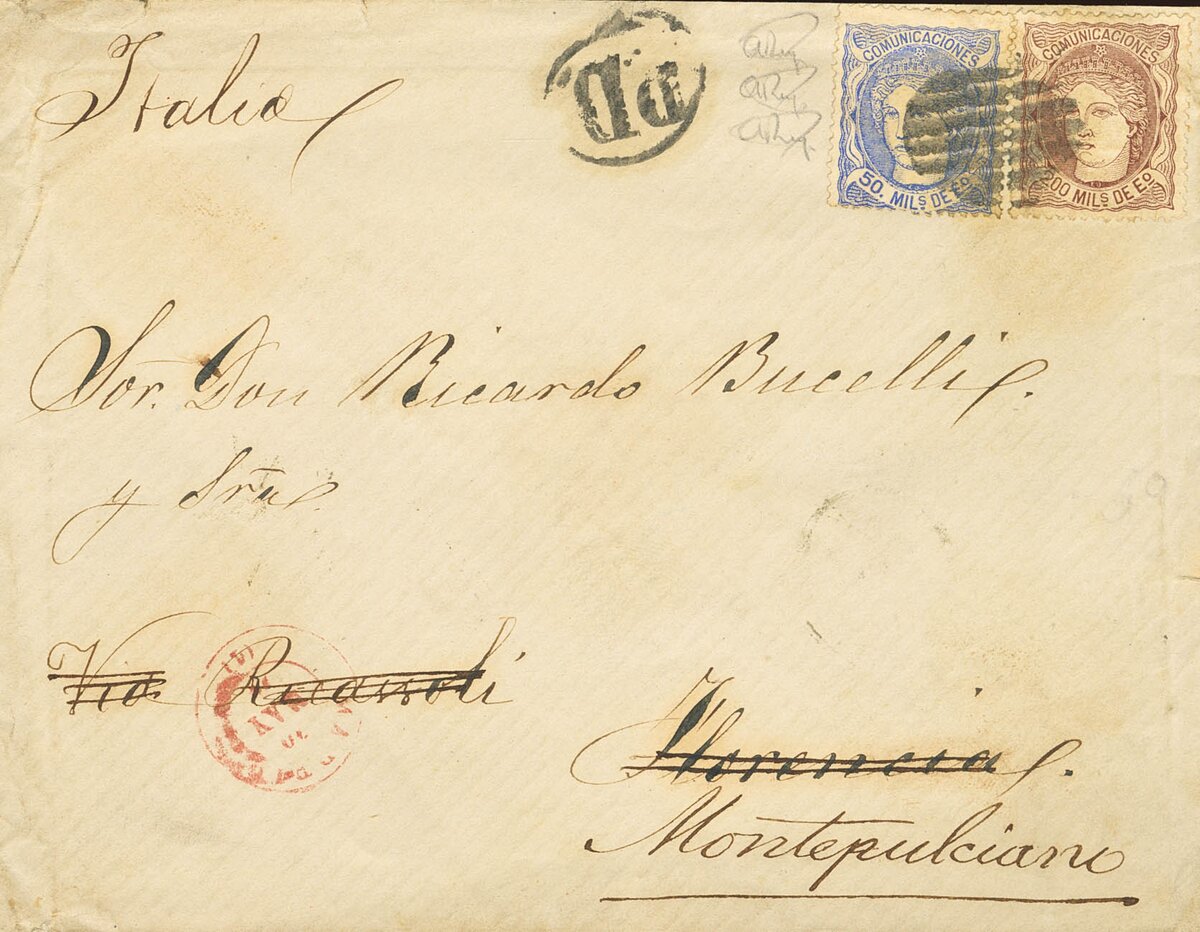 Italia
PD
COMUNICACIONES
50. MILS DE Eo.
COMUNICACIONES
200 MILS DE Eo.
Sor. Don Ricardo Bucelli.
y Sra.
Via Ricasoli
Florencia.
Montepulciano